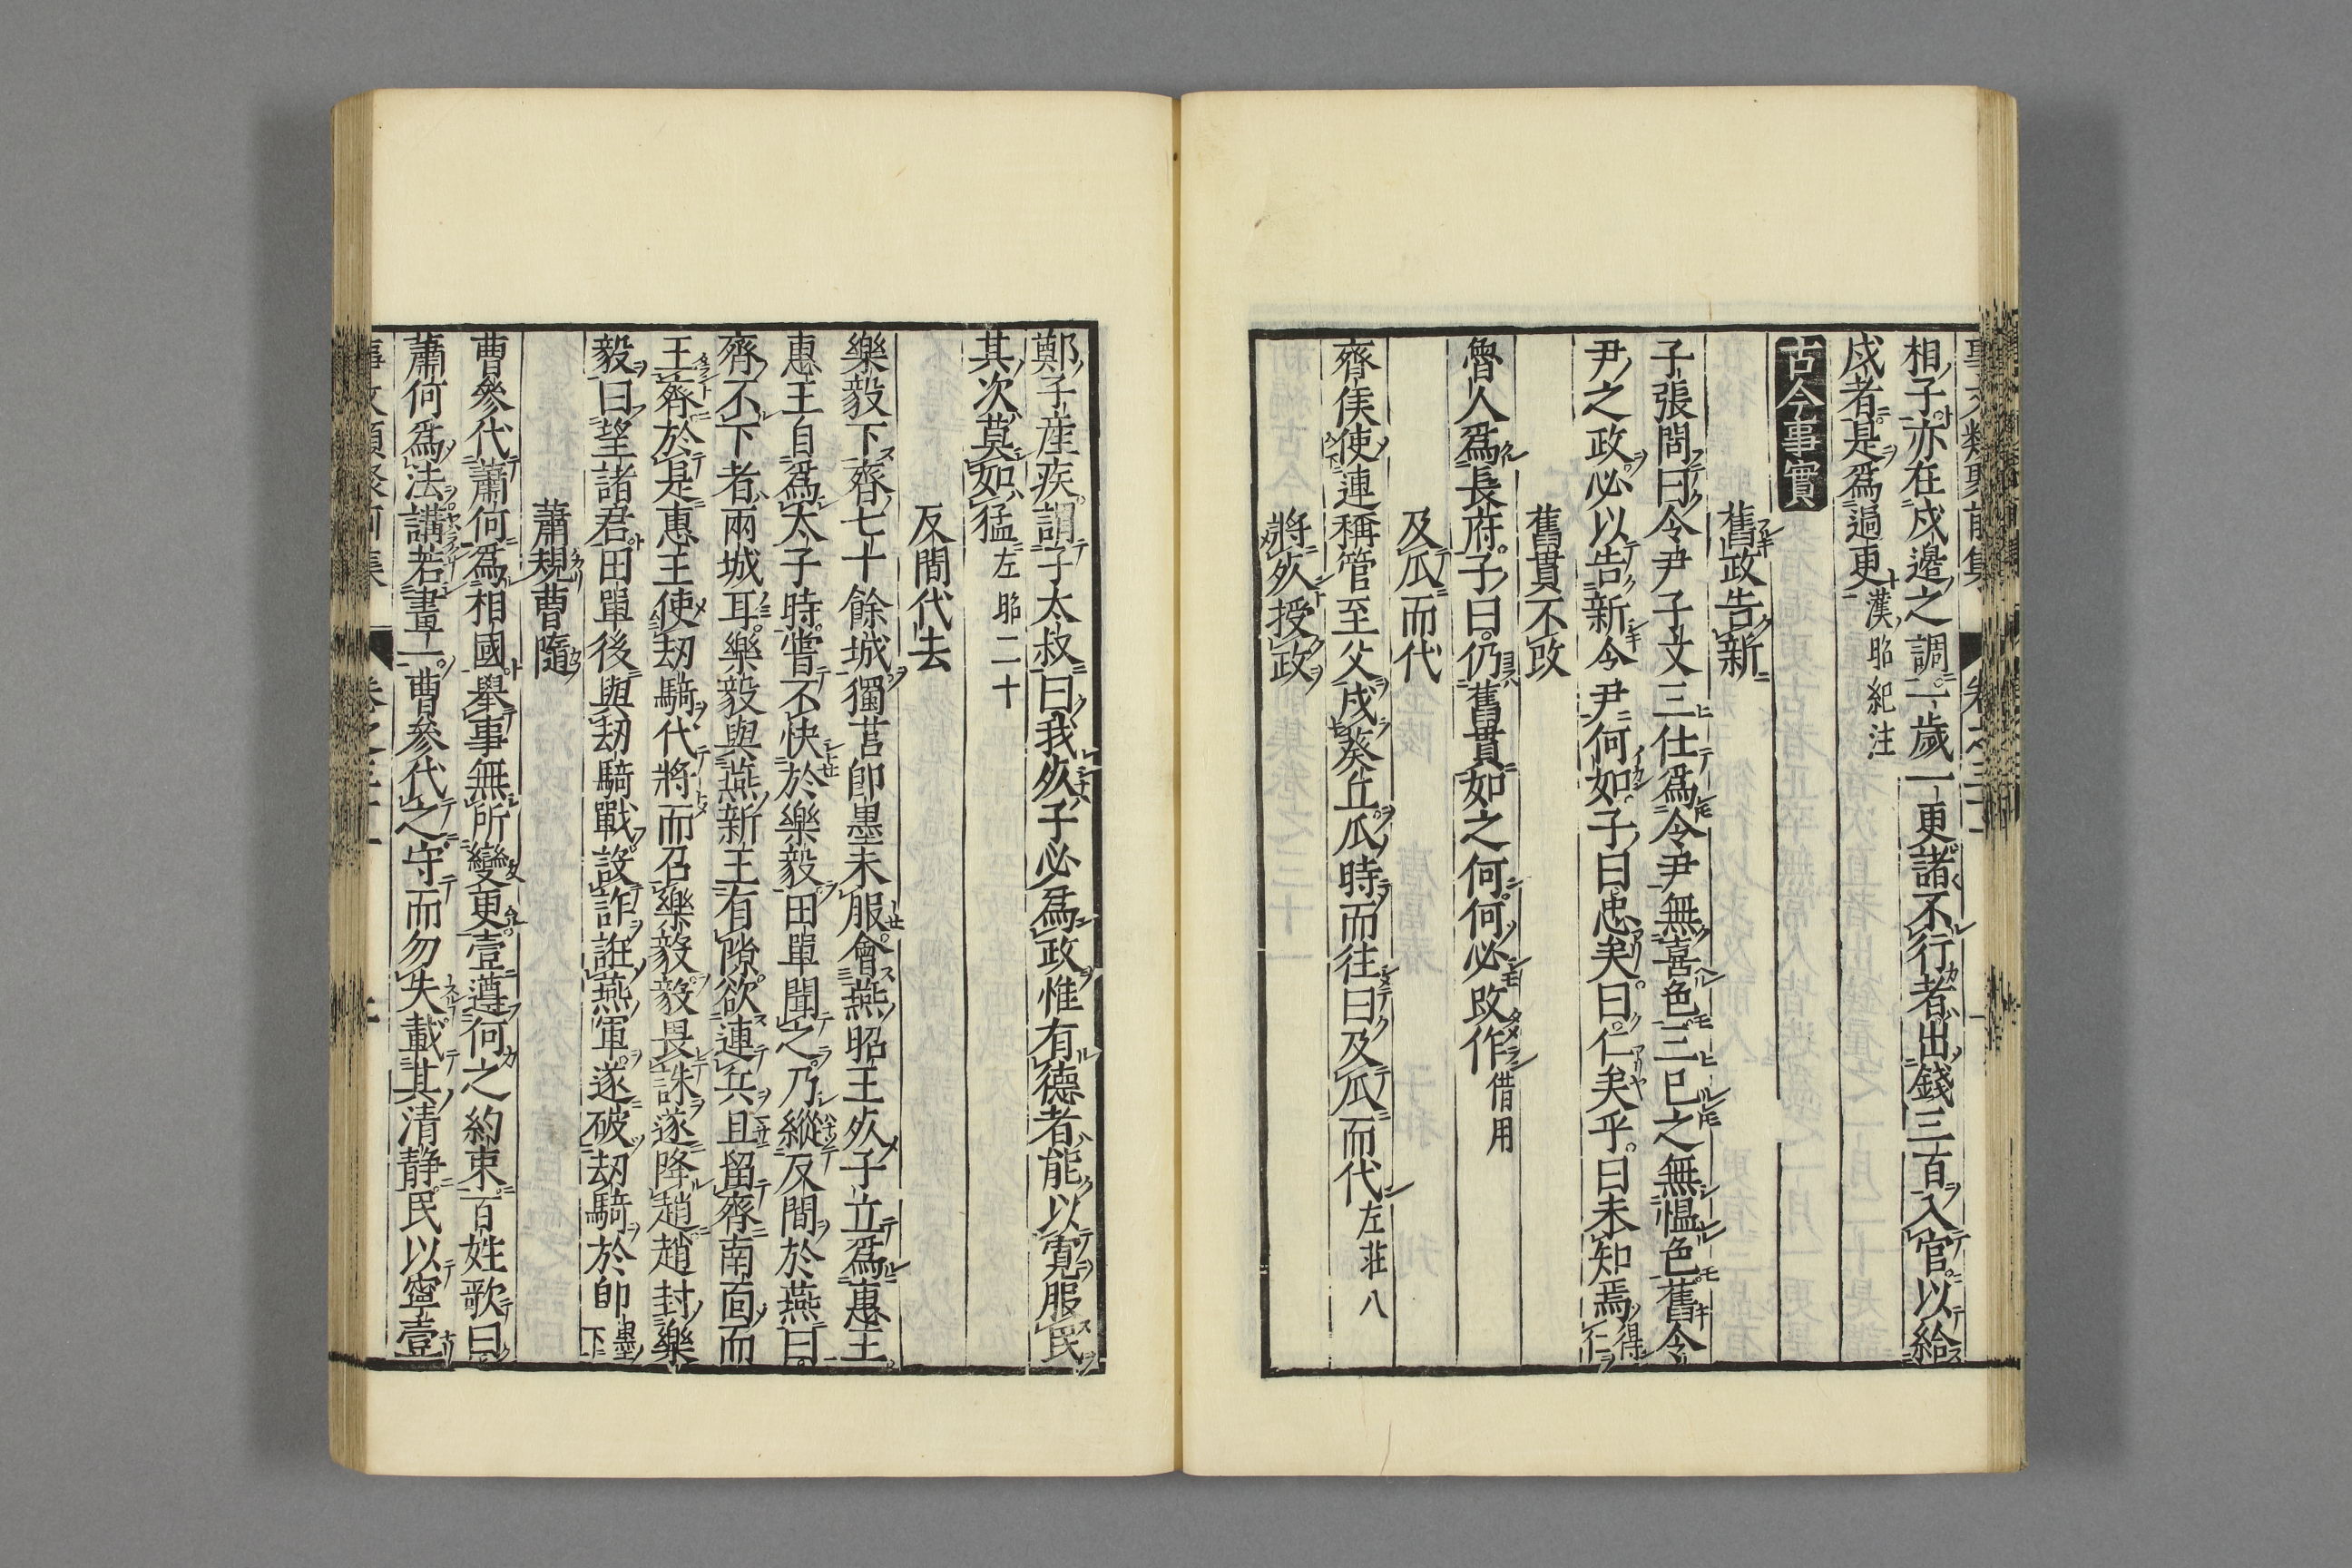 相子亦在戍邊之調二歲一更諸不行者出錢三百入官以給
戍者是爲過更漢昭紀注
古今事實
舊政告新
子張問曰令尹子文三仕爲令尹無喜色三已之無慍色舊令
尹之政必以告新令尹何如子曰忠矣曰仁矣乎曰未知焉得仁
舊貫不改
魯人爲長府子曰仍舊貫如之何何必改作借用
及瓜而代
齊侯使連稱管至父戍葵丘瓜時而往曰及瓜而代左莊八
將死授政
鄭子産疾謂子太叔曰我死子必爲政惟有德者能以寬服民
其次莫如猛左昭二十
反間代去
樂毅下齊七十餘城獨莒卽墨未服會燕昭王死子立爲惠王
惠王自爲太子時嘗不快於樂毅田單聞之乃縱反間於燕曰
齊不下者兩城耳樂毅與燕新王有隙欲連兵且留齊南面而
王齊於是惠王使刼騎代將而召樂毅毅畏誅遂降趙趙封樂
毅曰望諸君田單後與刼騎戰設詐誑燕軍遂破刼騎於卽墨下
蕭規曹隨
曹參代蕭何爲相國舉事無所變更壹遵何之約束百姓歌曰
蕭何爲法講若畫一曹參代之守而勿失載其清靜民以寧壹